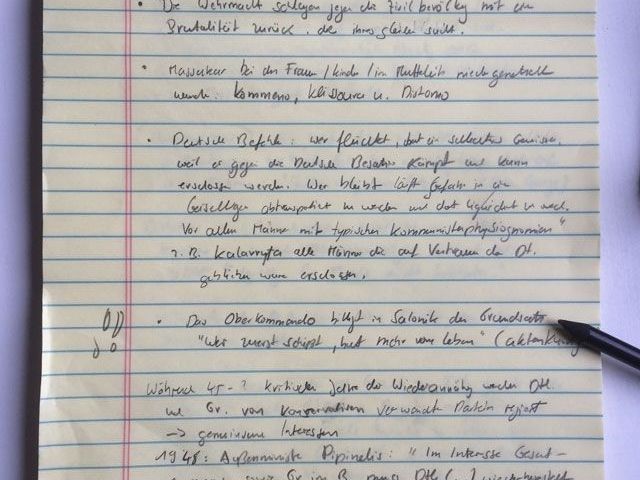 • Die Wehrmacht schlagen gegen die Zivilbevölkg mit ein
Brutalität zurück, die ihres gleichen sucht.
• Massaker bei den Frauen/Kinder/im Mutterleib niedergemetzelt
wurden: Kommeno, Klissoura u. Distomo
• Deutsche Befehle: wer flüchtet, hat ein schlechtes Gewissen,
weil er gegen die Deutsche Besatzer kämpft und kann
erschossen werden. Wer bleibt läuft Gefahr in ein
Geisellager abtransportiert zu werden und dort liquidiert zu werd.
Vor allem Männer mit typischen Kommunistenphysiognomien"
z.B. Kalavryta alle Männer die auf Vertrauen der Dt.
geblieben waren erschossen.
• Das Oberkommando billigt in Saloniki den Grundsatz
"Wer zuerst schießt, hat mehr vom Leben" (aktenkundig
Während 45-? kritischen Jahre der Wiederannähg werden Dtl.
und Gr. von konservativen verwandte Parteien regiert
→ gemeinsame Interessen
1948: Außenminister Pipinelis: "Im Interesse Gesamt-
Gr in B muss Dtl (...)